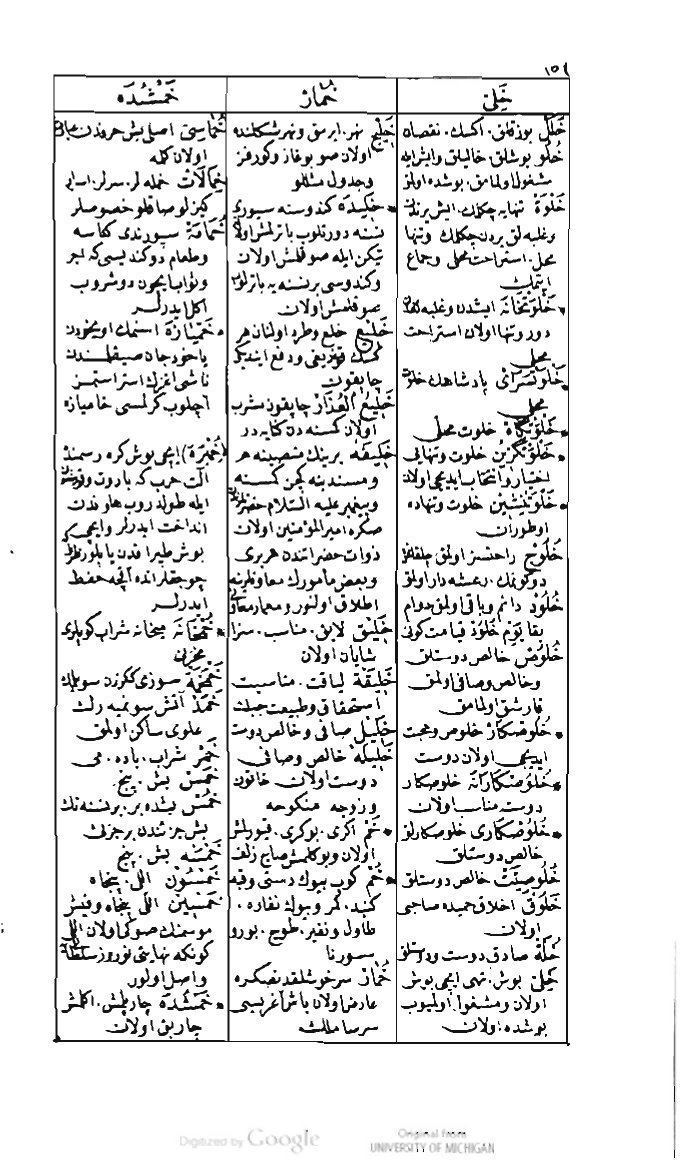 ١٥٤
خَلِىّ
خَلَل بوزقلق. اكسك. نقصان
خُلُو بوشلق. خاليلق وايش ايله
مشغول اولمامق. بوشده اولمق
خَلْوَة تنهايه چكلمك. ايش بردن
وغلبه لق يردن چكلمك وتنها
محل. استراحت محلى وجماع
ايتمك
• خَلْوَتْخَانَه ايشدن وغلبه لقدن
دور وتنها اولان استراحت
محلى
• خَلْوَتْسَرَاىْ پادشاهك خلوت
محلى
• خَلْوَتْگَاهْ خلوت محلى
• خَلْوَتْگُزِينْ خلوت وتنهايى
اختيار وانتخاب ايديجى اولان
• خَلْوَتْنِشِينْ خلوت وتنهاده
اوطوران
خُلُوج راحتسز اولمق
خُلُودْ دائم وباقى اولمق دوام
بقا يَوْم خُلُودْ قيامت كونى
خُلُوصْ خالص دوستلق
وخالص وصافى اولمق
قارشق اولمامق
• خُلُوصْكَارْ خلوص ومحبت
ايديجى اولان دوست
• خُلُوصْكَارَانَه خلوصكار
دوسته مناسب اولان
• خُلُوصْكَارِى خلوصكارلق
خالص دوستلق
خُلُوصِيَّتْ خالص دوستلق
خَلُوقْ اخلاق حميده صاحبى
اولان
خُلَّة صادق دوست ودوستلق
خَلِىّ بوش. تهى ايچى بوش
اولان ومشغول اولميوب
بوشده اولان
خُمَارْ
خَلِيج نهر. ايرمق ونهر شكلنده
اولان صو بوغاز وكورفز
وجدول مثللو
• خَلِيدَه كندوسنه سيورى
بر نسنه دورتلوب باتر لمش اولان
تيكن ايله صوقلمش اولان
وكندوسى بر نسنه يه باترلوب
صوقلمش اولان
خَلِيع خلع وطرد اولنان هر
كسك
چاپقون
خَلِيعُ الْعِذَارْ چاپقون مشرب
اولان كمسنه دن كنايه در
خَلِيفَه برينك منصبينه هر
ومسندينه كچن كمسنه
وپيغمبر عليه السلام حضرتلرندن
صكره امير المؤمنين اولان
ذوات حضراتندن هر برى
وبعض مأمورك معاونلرينه
اطلاق اولنور ومعمار معاونى
خَلِيق لايق. مناسب. سزا
شايان اولان
خَلِيقَة لياقت. مناسبت
استحقاق وطبيعت جبلت
خَلِيل صافى وخالص دوست
خَلِيلَه خالص وصافى
دوست اولان خاتون
وزوجه منكوحه
• خَم اكرى. بوكرى. قيورلمش
اولان وبوكلمش صاچ زلف
• خُم كوپ بيوك دستى وقبه
كنبد. كمر وبيوك نقاره.
طاول ونفير. طوج. بورو
سورنا
خُمَارْ سرخوشلقدنصكره
عارض اولان باش اغريسى
سرساملك
خَمْشُدَه
خُمَاسِى اصلى بش حرفدن عبارت
اولان كلمه
خَمَالَاتْ خمله لر. سرلر. اسرار
كيزلو صاقلو خصوصلر
خُمَامَة سپورندى كناسه
وطعام دوكنديسى كه اجر
وثواب ايچون دوشروب
اكل ايدرلر
• خَمْيَازَه اسنمك اويقودن
ياخود جان صيقلمهدن
ناشى اغزك استر استمز
آچلوب كرلمسى خاميازه
(خُمْبَرَه) ايچى بوش كره رسمنده
آلت حرب كه باروت وقورشون
ايله طولدروب هاوندن
انداخت ايدرلر وايچى
بوش طپراقدن ياپلور
چوجقلر انده آقچه حفظ
ايدرلر
• خُمْخَانَه ميخانه شراب كوپلرى
مخزنى
خَمْخَمَة سوزى ككزدن سويلمك
خَمَدْ آتش سونميه رك
علوى ساكن اولمق
خَمْر شراب. باده. مى
خَمْسْ بش. پنج
خُمْسْ بشده بر. بر نسنه نك
بش جزئندن بر جزئى
خَمْسَه بش. پنج
خَمْسُونْ اللى. پنجاه
خَمْسِينْ اللى. پنجاه وقيش
موسمنك صوكى اولان اللى
كونكه نهايتى نوروز سلطانه
واصل اولور
• خَمْشُدَه چارپلمش. اكلمش
چارپق اولان
Digitized by Google
Original from
UNIVERSITY OF MICHIGAN